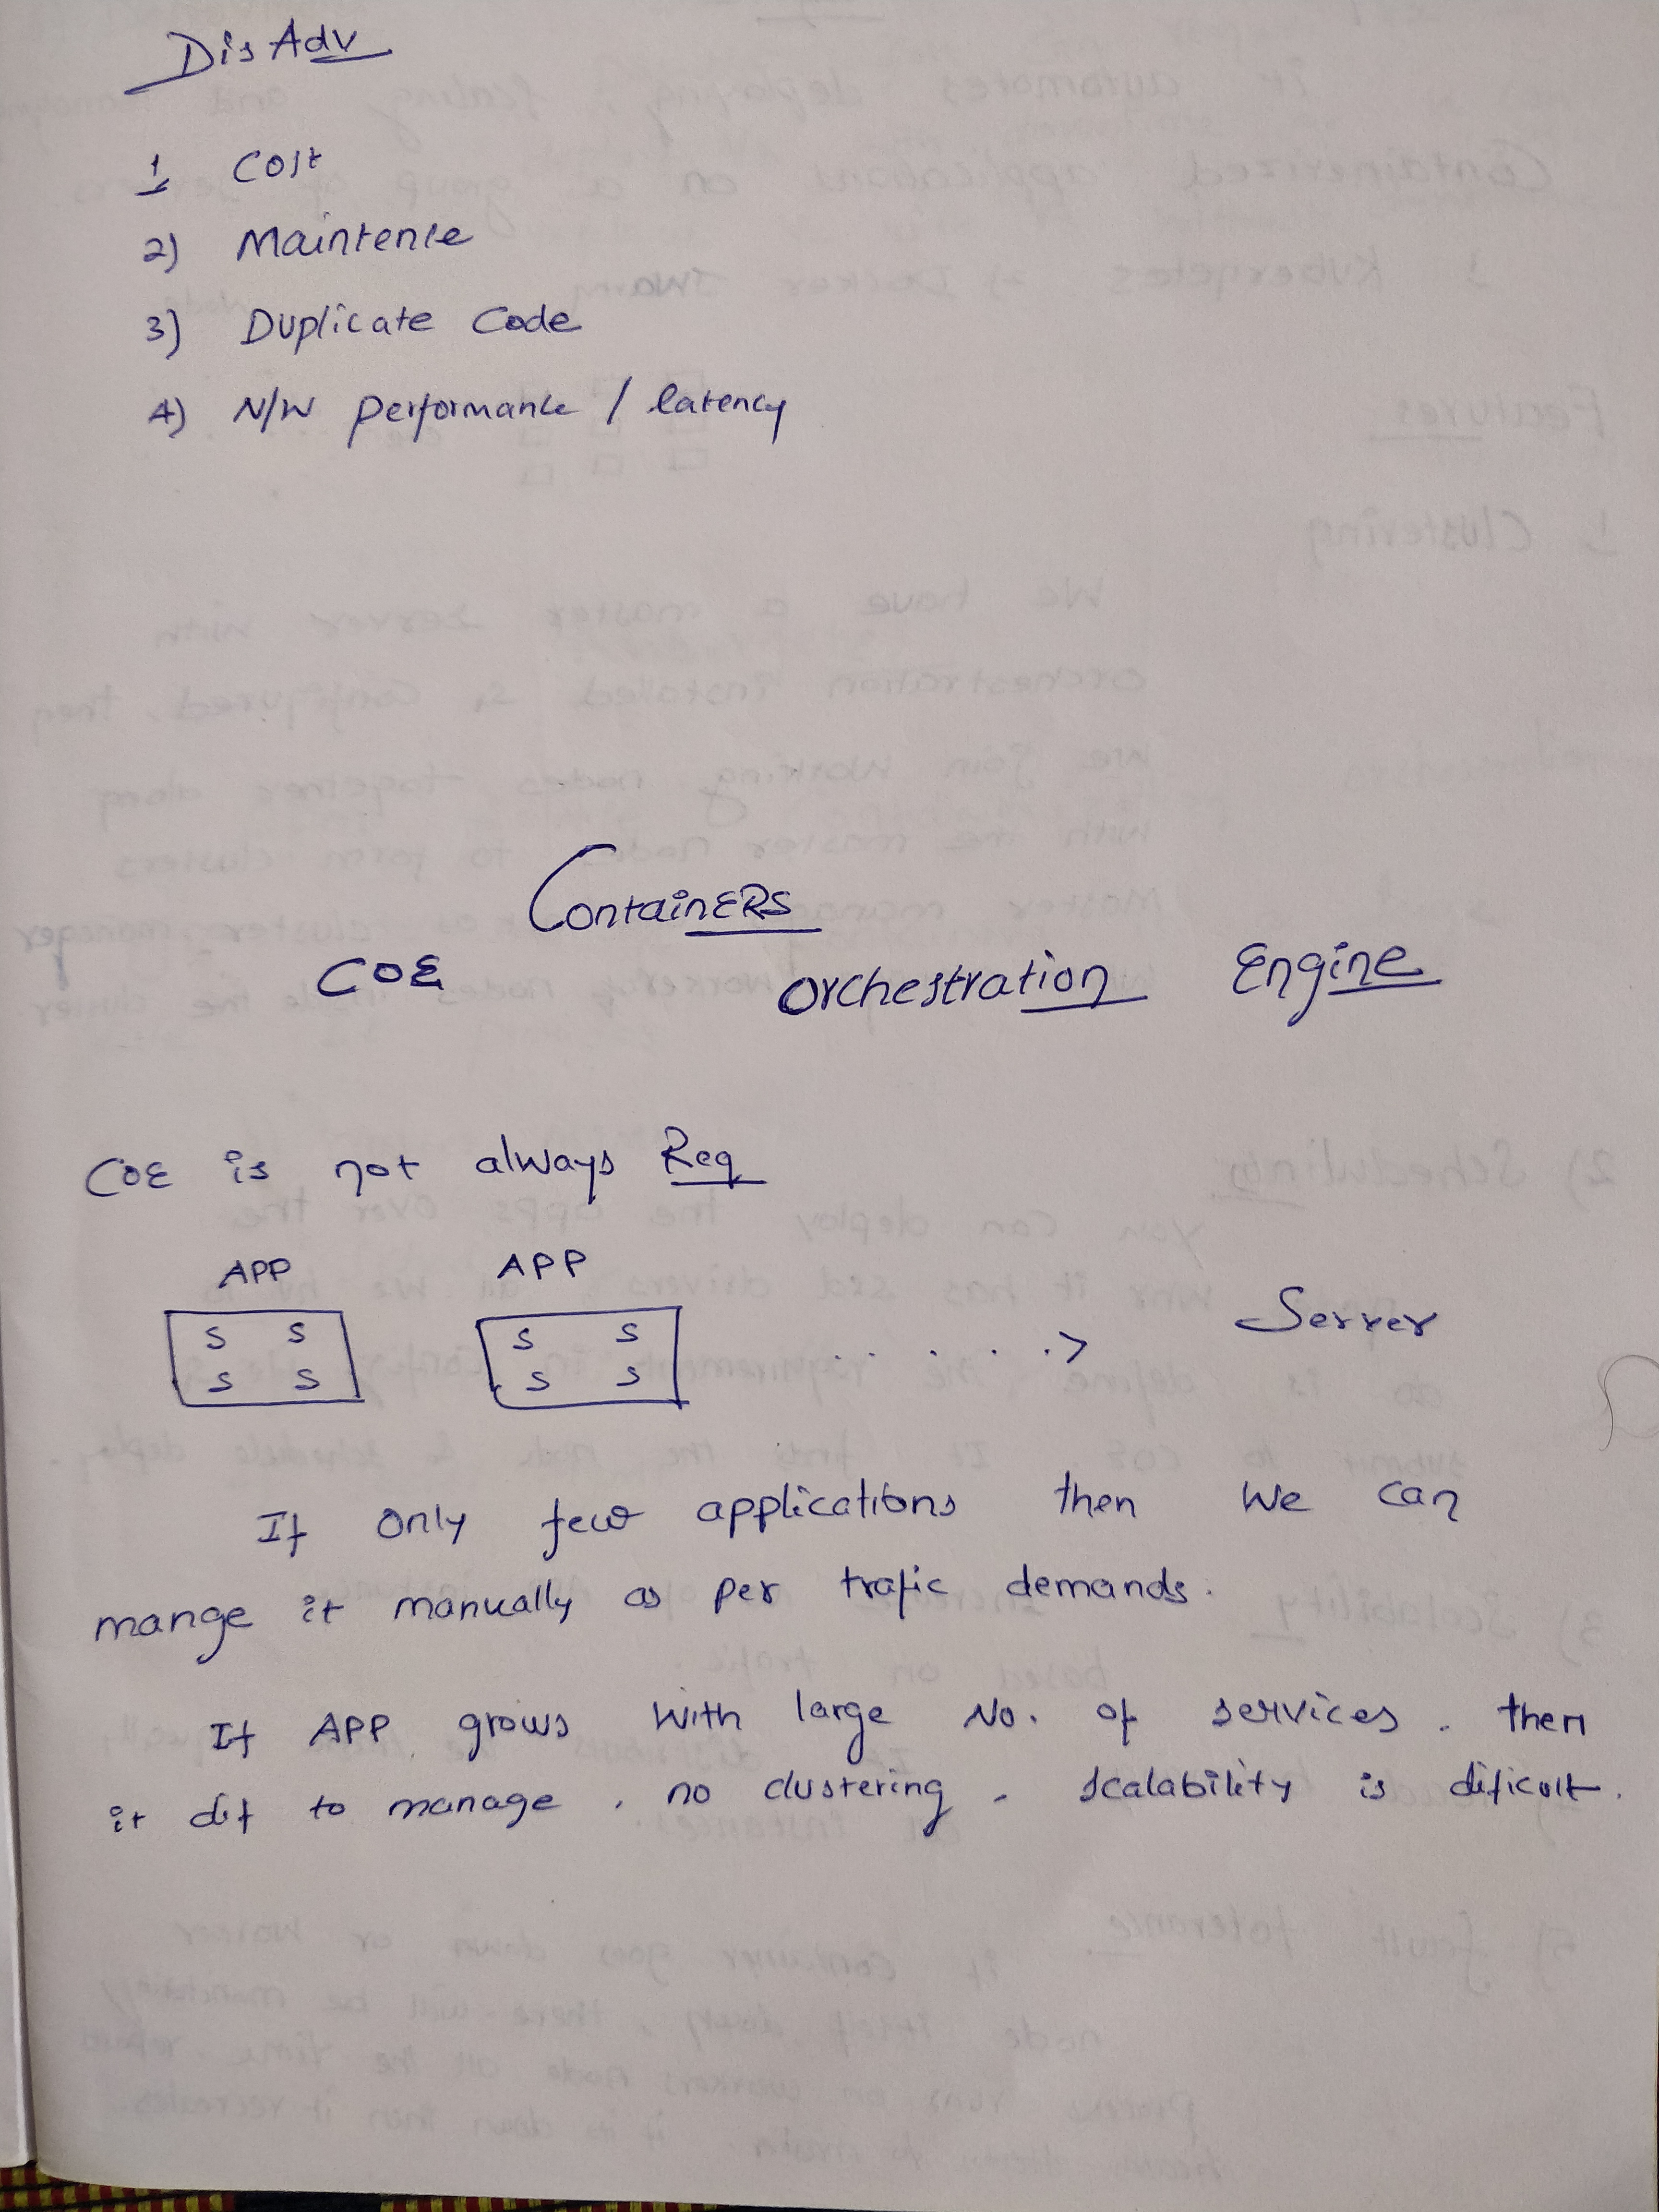 DisAdv
1, Cost
2) Maintence
3) Duplicate Code
4) N/W performance / latency
ContainERS
COE orchestration Engine
COE is not always Req
APP APP
S S S S
S S S S
. . . . . .> Server
If only few applications then we can
mange it manually as per trafic demands.
If APP grows with large No. of services. then
it dif to manage, no clustering, scalability is dificult.